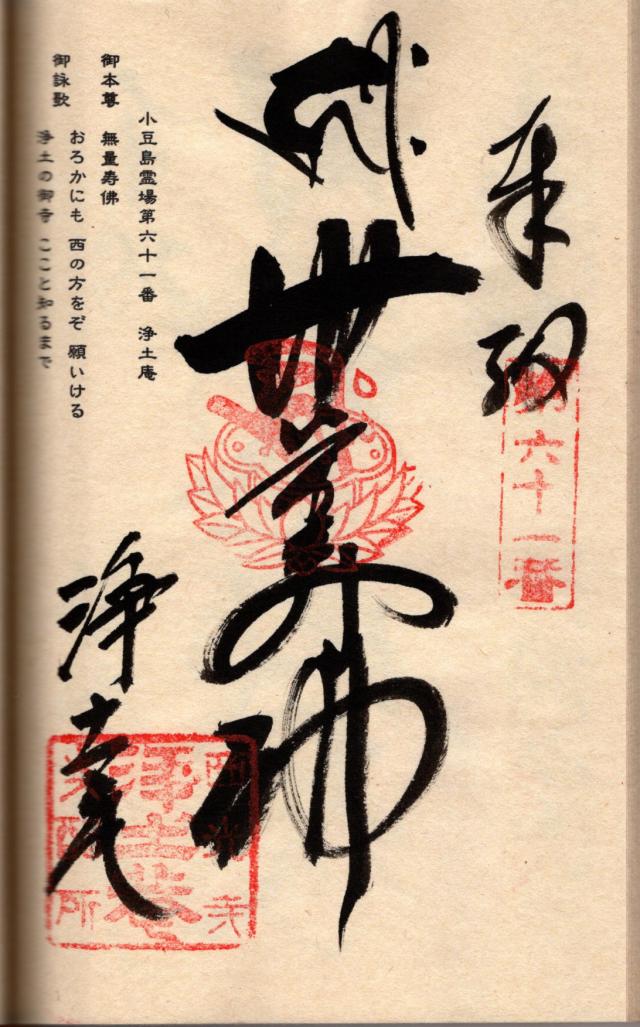 奉納
第六十一番
無量寿佛
小豆島霊場第六十一番　浄土庵
御本尊　無量寿佛
御詠歌　おろかにも　西の方をぞ　願いける
浄土の御寺　ここと知るまで
浄土庵
浄土菴